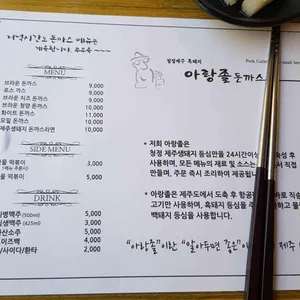 저녁시간은 돈까스 메뉴는
MENU
브라운 돈까스 9,000
로스 까스 9,000
브라운 치즈 돈까스 9,000
브라운 청양 돈까스 10,000
화이트 돈까스 11,000
모밀 돈까스 10,000
제주생돼지 돈까스라면 10,000
SIDE MENU
떡볶이 3,000
떡볶이 5,000
DRINK
병맥주 (500ml) 5,000
생맥주 (425ml) 3,000
산소주 5,000
이즈백 4,000
/사이다/환타 2,000
청정제주 흑돼지
아랑졸 돈까스
Pork Cutlet
• 저희 아랑졸은
청정 제주생돼지 등심만을 24시간이상
사용하며, 모든 메뉴의 재료 및 소스는
만들며, 주문 즉시 조리하여 제공됩니다
• 아랑졸은 제주도에서 도축 후 항공 직송
고기만 사용하며, 흑돼지 등심을
백돼지 등심을 사용합니다.
"아랑졸"이란 "알아두면 좋은" 제주